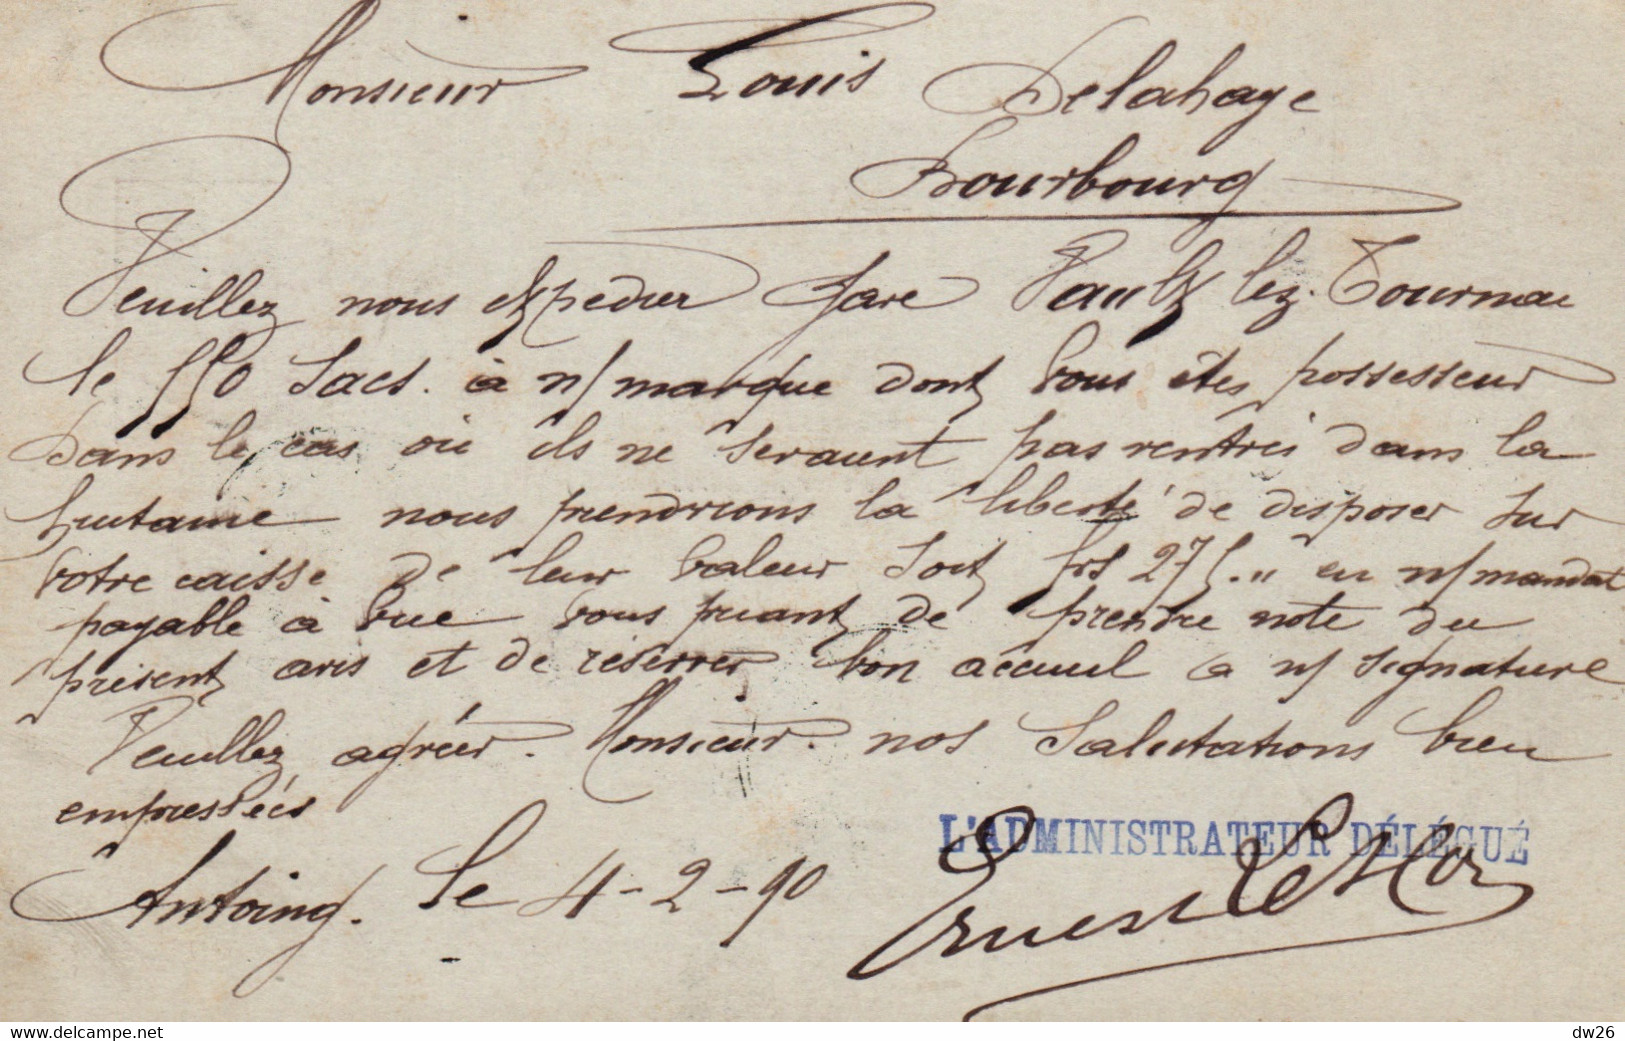 Monsieur Louis Delahaye
Bourbourg
Veuillez nous expedier Gare Vaulx lez. Tournai
le 550 Sacs. à n/ marque dont vous êtes possesseur
Dans le cas où ils ne seraient pas rentrés dans la
huitaine nous prendrions la liberté de disposer sur
votre caisse de leur valeur soit frs 275." en n/ mandat
payable à vue vous priant de prendre note du
présent avis et de réserver bon accueil à n/ signature
Veuillez agréer. Monsieur. nos Salutations bien
empressées
L'ADMINISTRATEUR DÉLÉGUÉ
Antoing. le 4-2-90
Ernest
dw26